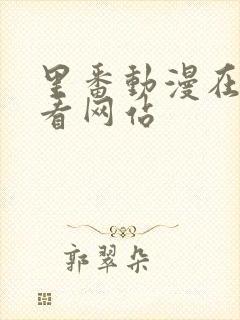 里番動漫在
看网站
郭翠朵